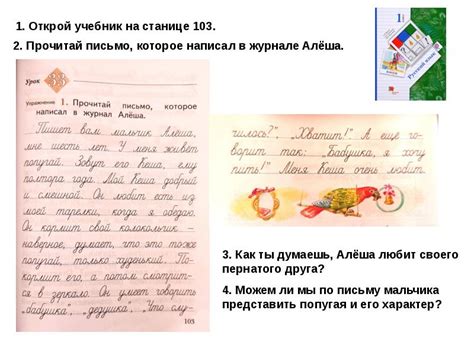 1. Открой учебник на станице 103.
2. Прочитай письмо, которое написал в журнале Алёша.
1
Русский язык
Урок 33
Упражнение 1. Прочитай письмо, которое
написал в журнал Алёша.
Пишет вам мальчик Алёша,
мне шесть лет. У меня живёт
попугай. Зовут его Кеша, ему
полтора года. Мой Кеша добрый
и смешной. Он любит есть из
моей тарелки, когда я обедаю.
Он кормит свой колокольчик –
наверное, думает, что это тоже
попугай, только худенький. По-
кормит его, а потом смотрит-
ся в зеркало. Он умеет говорить
„бабушка", „дедушка", „Что слу-
103
чилось?", „Хватит!" А ещё го-
ворит так: „Бабушка, я хочу
пить!" Меня Кеша очень любит.
3. Как ты думаешь, Алёша любит своего
пернатого друга?
4. Можем ли мы по письму мальчика
представить попугая и его характер?